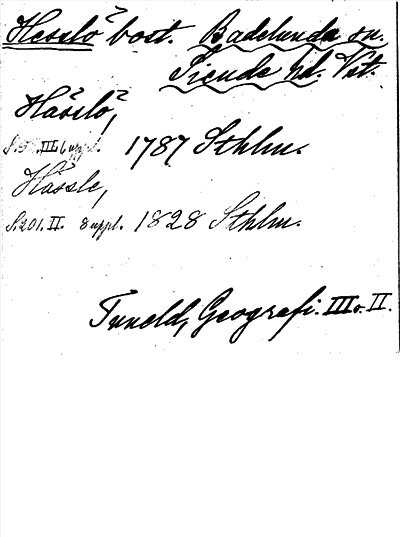 Hesslö bost. Badelunda sn.
Siende hd. Vst.
Hässlö,
III 6 uppl. 1787 Sthlm.
Hässle,
S. 201. II. 8 uppl. 1828 Sthlm.
Tuneld, Geografi. III o. II.